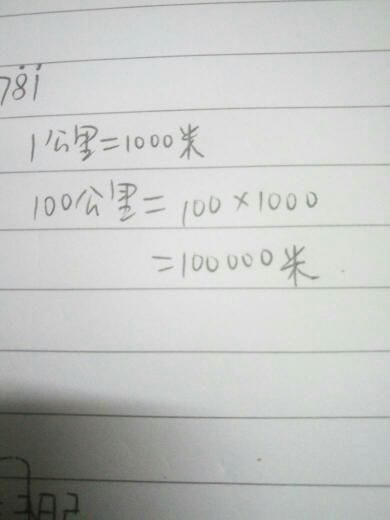 781
1公里=1000米
100公里=100×1000
=100000米